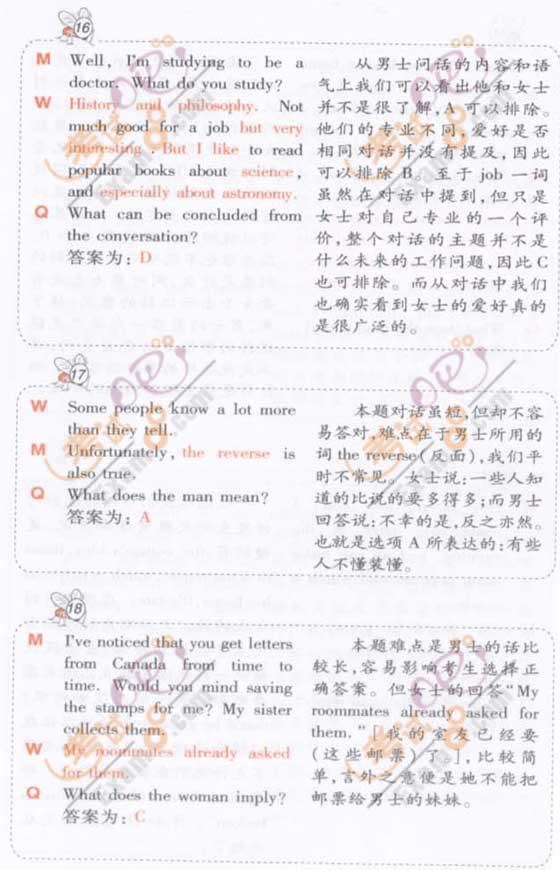 16
M Well, I'm studying to be a
doctor. What do you study?
W History and philosophy. Not
much good for a job but very
interesting. But I like to read
popular books about science,
and especially about astronomy.
Q What can be concluded from
the conversation?
答案为：D
从男士问话的内容和语
气上我们可以看出他和女士
并不是很了解，A 可以排除。
他们的专业不同，爱好是否
相同对话并没有提及，因此
可以排除 B。至于 job 一词
虽然在对话中提到，但只是
女士对自己专业的一个评
价，整个对话的主题并不是
什么未来的工作问题，因此 C
也可排除。而从对话中我们
也确实看到女士的爱好真的
是很广泛的。
17
W Some people know a lot more
than they tell.
M Unfortunately, the reverse is
also true.
Q What does the man mean?
答案为：A
本题对话虽短，但却不容
易答对，难点在于男士所用的
词 the reverse（反面），我们平
时不常见。女士说：一些人知
道的比说的要多得多；而男士
回答说：不幸的是，反之亦然。
也就是选项 A 所表达的：有些
人不懂装懂。
18
M I've noticed that you get letters
from Canada from time to
time. Would you mind saving
the stamps for me? My sister
collects them.
W My roommates already asked
for them.
Q What does the woman imply?
答案为：C
本题难点是男士的话比
较长，容易影响考生选择正
确答案。但女士的回答“My
roommates already asked for
them.”[我的室友已经要
(这些邮票)了]，比较简
单，言外之意便是她不能把
邮票给男士的妹妹。